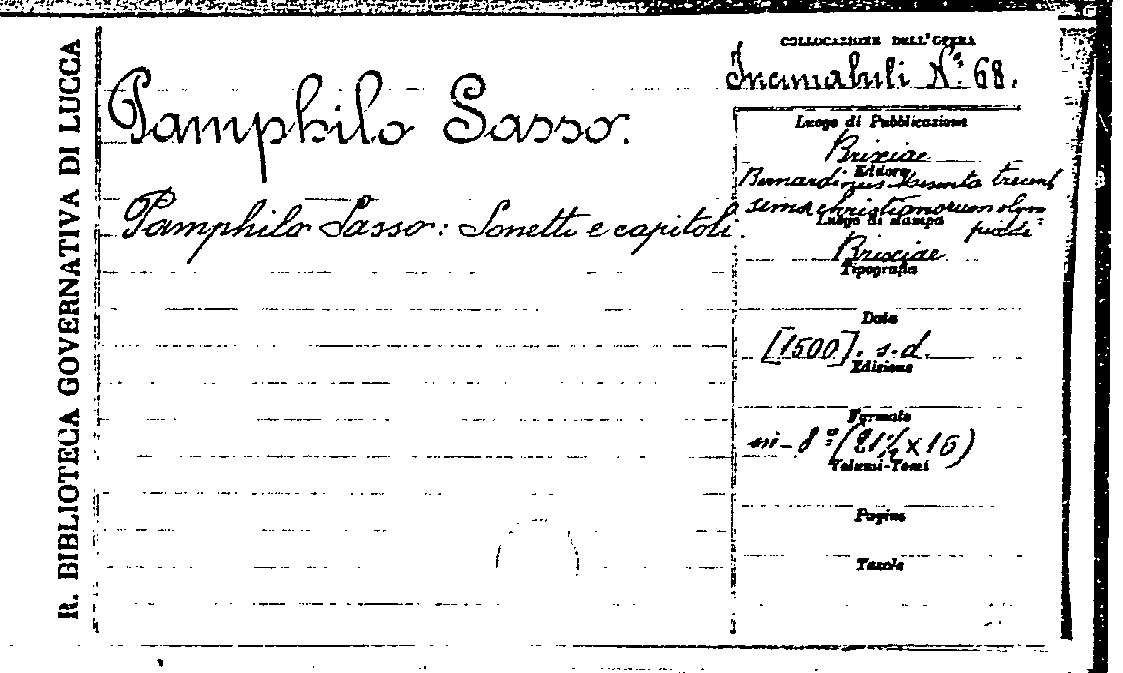 R. BIBLIOTECA GOVERNATIVA DI LUCCA
Pamphilo Sasso.
Pamphilo Sasso: Sonetti e capitoli.
COLLOCAZIONE DELL'OPERA
Incunabuli N.º 68.
Luogo di Pubblicazione
Brixiae
Editore
Bernardinus
Luogo di stampa
Brixiae
Tipografia
Data
[1500]. s.d.
Edizione
Formato
in-8º (21½ x 16)
Volumi-Tomi
Pagine
Tavole